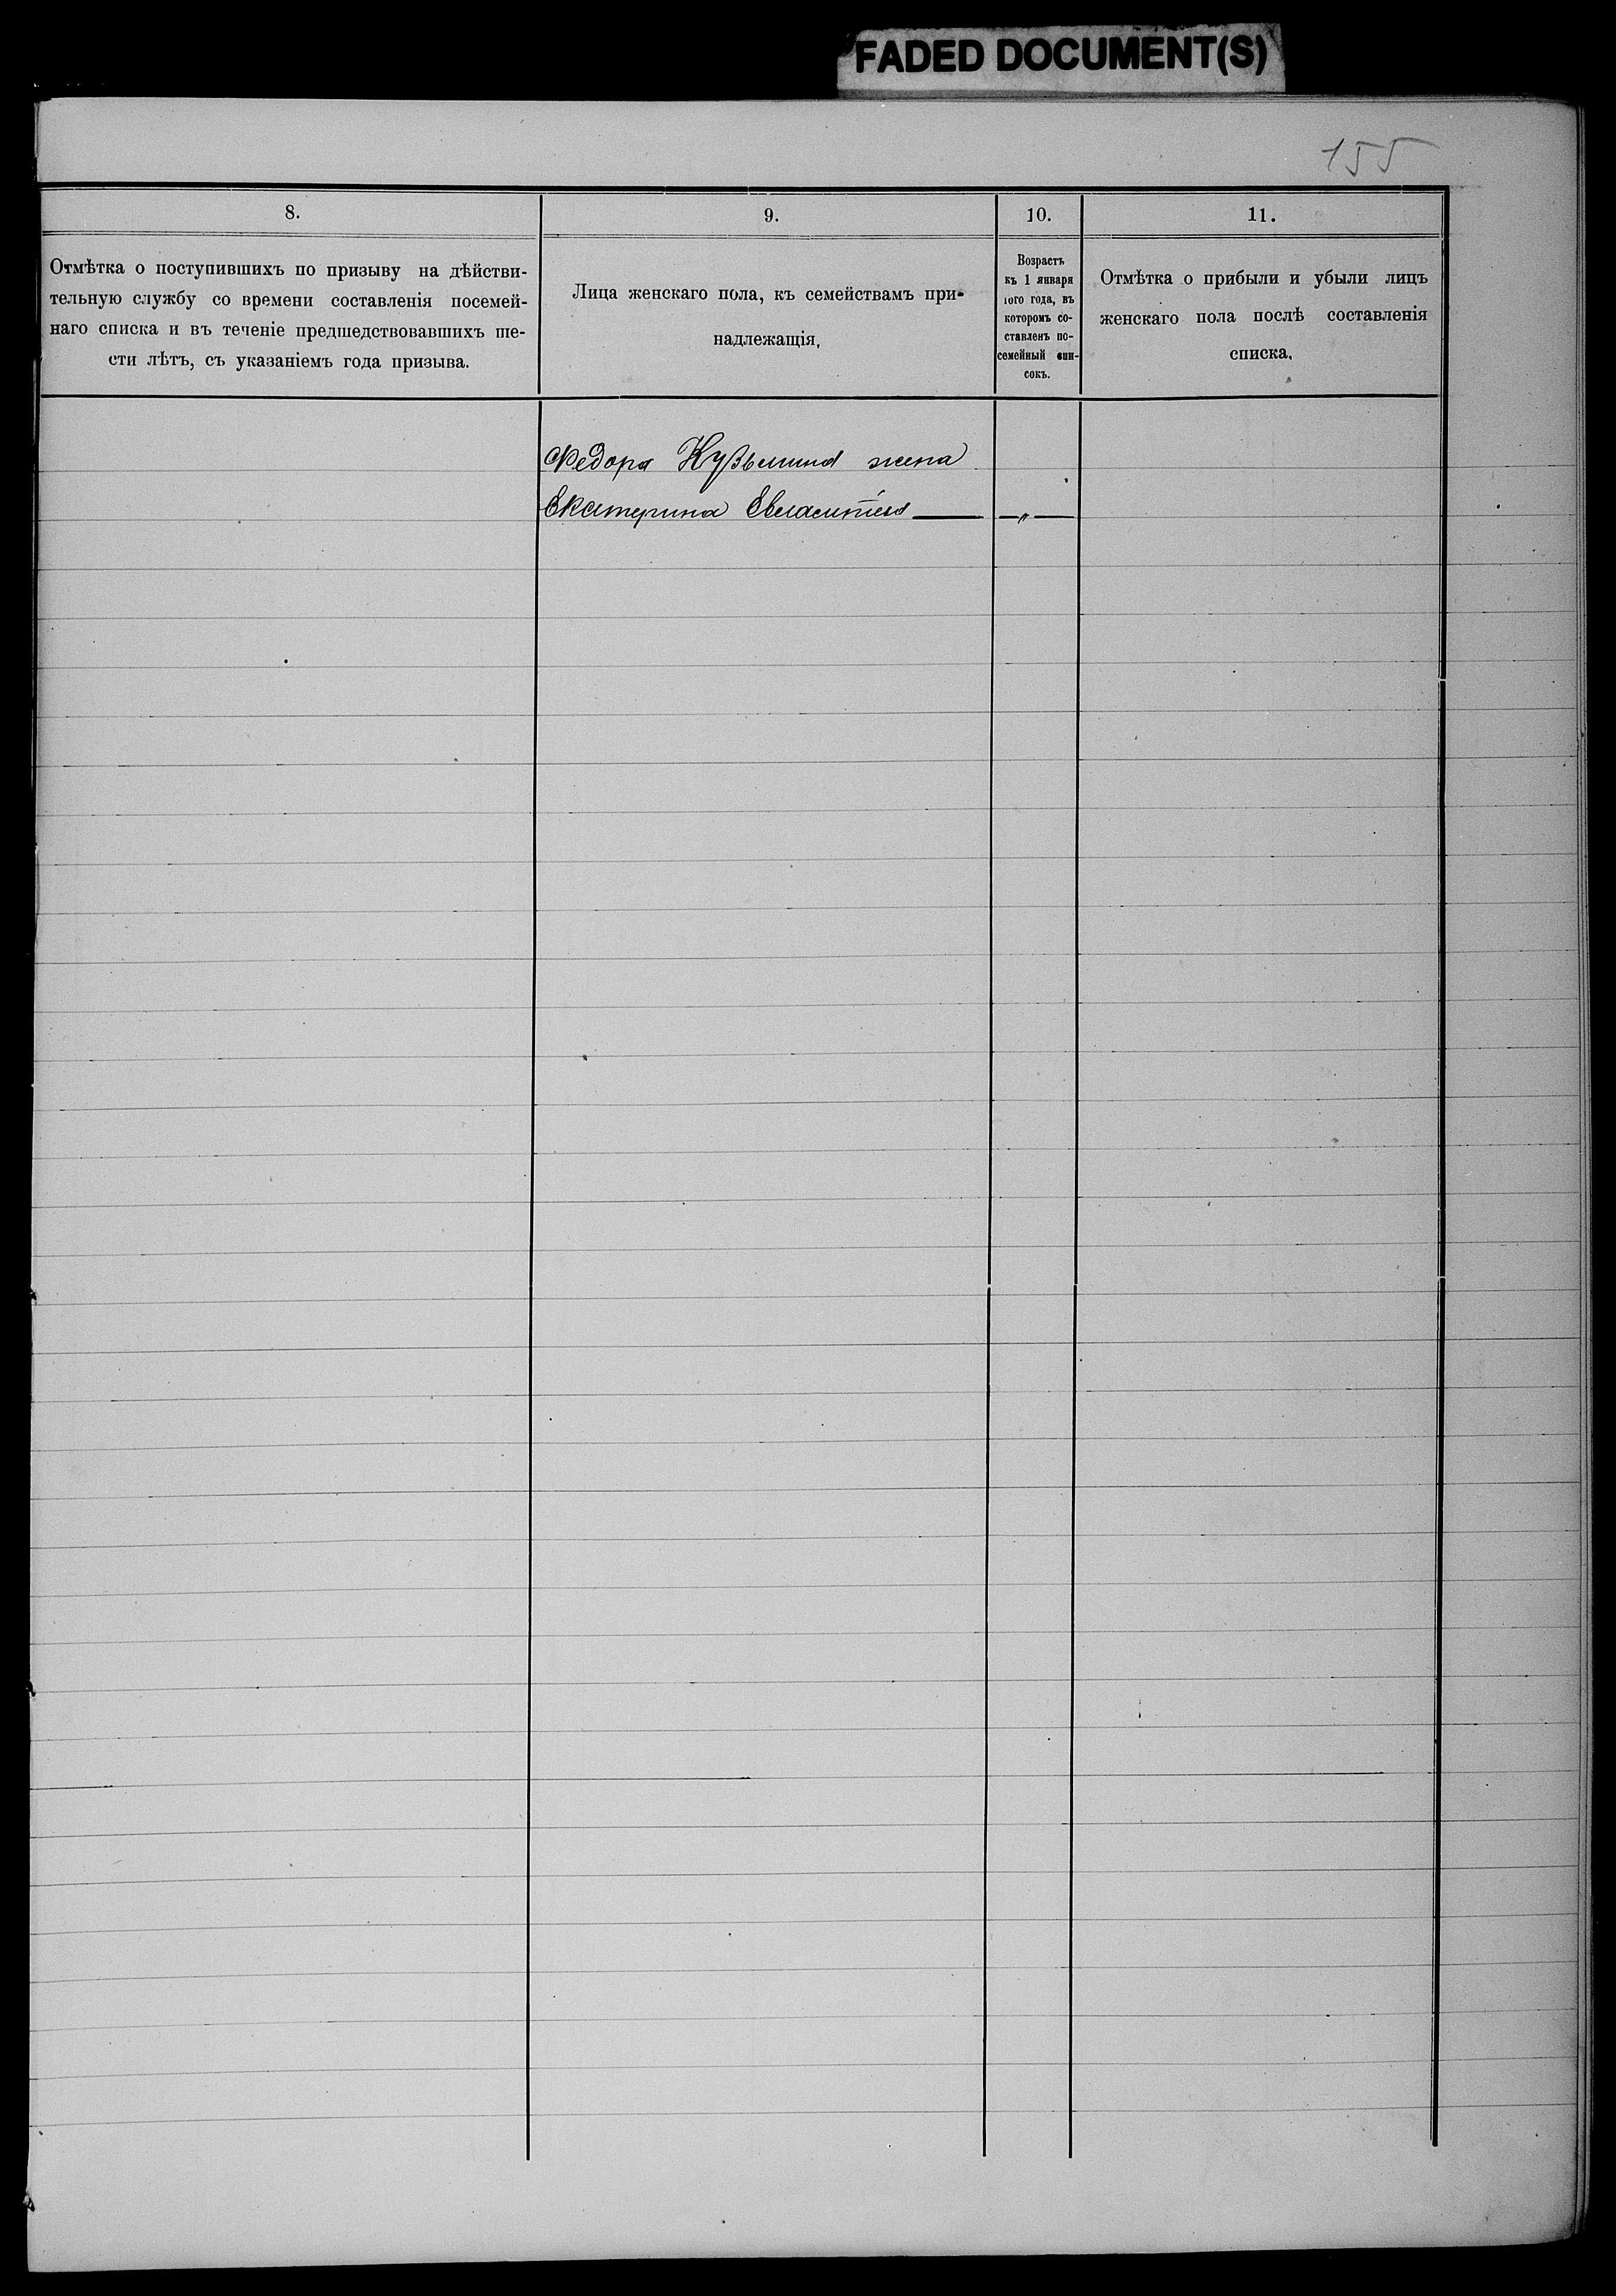 FADED DOCUMENT(S)
155
8.
9.
10.
11.
Отмѣтка о поступившихъ по призыву на дѣйстви-
тельную службу со времени составленія посемей-
наго списка и въ теченіе предшедствовавшихъ ше-
сти лѣтъ, съ указаніемъ года призыва.
Лица женскаго пола, къ семействамъ при-
надлежащія,
Возрастъ
къ 1 января
того года, въ
которомъ со-
ставленъ по-
семейный спи-
сокъ.
Отмѣтка о прибыли и убыли лицъ
женскаго пола послѣ составленія
списка,
Федора Кузьмина жена
Екатерина — „ —